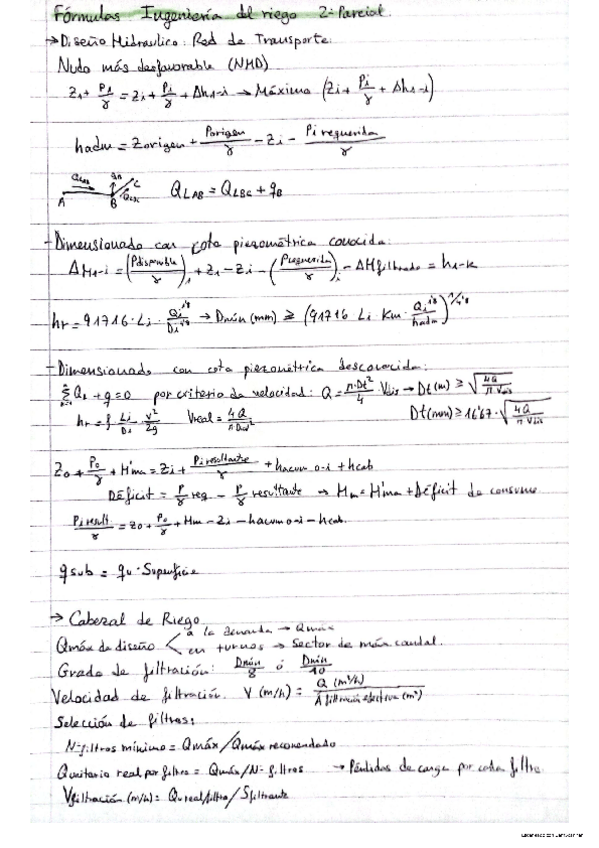 Fórmulas Ingeniería del riego 2º Parcial.
→ Diseño Hidráulico: Red de Transporte.
Nudo más desfavorable (NMD)
Z1 + P1/γ = Zi + Pi/γ + Δh1-i → Máximo (Zi + Pi/γ + Δh1-i)
hadm = Zorigen + Porigen/γ - Zi - Pi requerida/γ
A B C qB QLAB QLBC QLAB = QLBC + qB
- Dimensionado con cota piezométrica conocida:
ΔH1-i = (Pdisponible/γ)1 + Z1 - Zi - (Prequerida/γ)i - ΔHfiltrado = h1-k
hr = 91716 · Li · Qi^1'8/Di^4'8 → Dmín (mm) ≥ (91716 Li Km · Qi^1'8/hadm)^1/4'8
- Dimensionado con cota piezométrica desconocida:
Σ Q1 + q = 0 por criterio de velocidad: Q = π·Dt²/4 · Vdis → Dt(m) ≥ √(4Q/π Vdis)
hr = f Li/Di v²/2g Vreal = 4Q/π Dint² Dt(mm) ≥ 16'67 · √(4Q/π Vdis)
Z0 + P0/γ + H'm = Zi + Pi resultante/γ + hacum 0-i + hcab
Déficit = P/γ req - P/γ resultante → Hm = H'm + Déficit de consumo
Pi result/γ = Z0 + P0/γ + Hm - Zi - hacum 0-i - hcab.
qsub = qu · Superficie
→ Cabezal de Riego
Qmáx de diseño a la demanda → Qmáx
en turnos → Sector de más caudal.
Grado de filtración: Dmín/8 ó Dmín/10
Velocidad de filtración. V (m/h) = Q (m³/h)/A filtración efectiva (m²)
Selección de filtros:
Nº filtros mínimo = Qmáx/Qmáx recomendado
Qunitario real por filtro = Qmáx/Nº filtros → Pérdidas de carga por cada filtro.
Vfiltración (m/h) = Qu real filtro/Sfiltrante